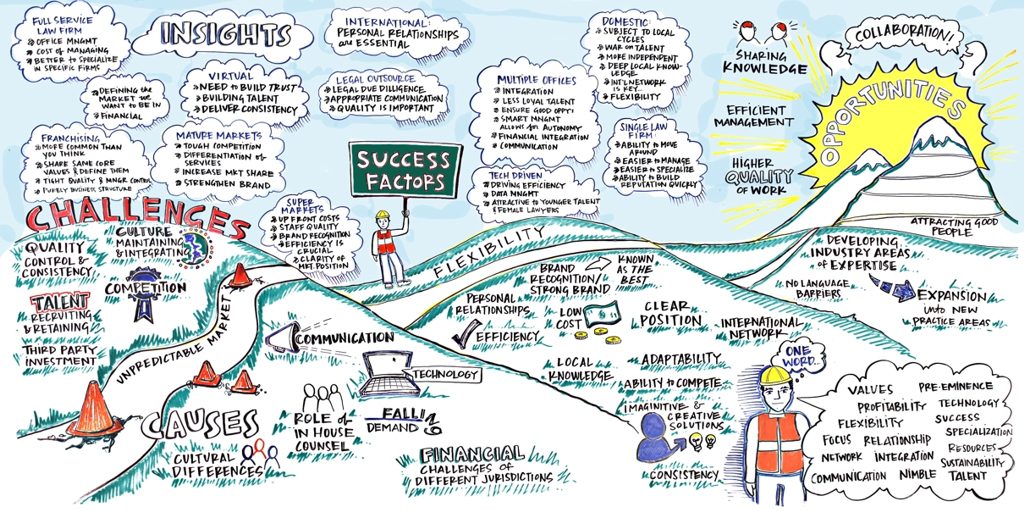 FULL SERVICE
LAW FIRM
OFFICE MNGMT
COST OF MANAGING
BETTER TO SPECIALIZE
IN SPECIFIC FIRMS
INSIGHTS
INTERNATIONAL:
PERSONAL RELATIONSHIPS
ARE ESSENTIAL
DOMESTIC:
SUBJECT TO LOCAL
CYCLES
WAR ON TALENT
MORE INDEPENDENT
DEEP LOCAL KNOW-
LEDGE
INT'L NETWORK
IS KEY
FLEXIBILITY
DEFINING THE
MARKET WE
WANT TO BE IN
FINANCIAL
VIRTUAL
NEED TO BUILD TRUST
BUILDING TALENT
DELIVER CONSISTENCY
LEGAL OUTSOURCE
LEGAL DUE DILIGENCE
APPROPRIATE COMMUNICATION
QUALITY IS IMPORTANT
MULTIPLE OFFICES
INTEGRATION
LESS LOYAL TALENT
ENSURE GOOD OPPTY
SMART MNGMT
ALLOWS for AUTONOMY
FINANCIAL INTEGRATION
COMMUNICATION
FRANCHISING
MORE COMMON THAN
YOU THINK
SHARE SAME CORE
VALUES & DEFINE THEM
TIGHT QUALITY & MNGR CONTROL
PURELY BUSINESS STRUCTURE
MATURE MARKETS
TOUGH COMPETITION
DIFFERENTIATION of
SERVICES
INCREASE MKT SHARE
STRENGTHEN BRAND
SUPER
MARKETS
UP FRONT COSTS
STAFF QUALITY
BRAND RECOGNITION
EFFICIENCY IS
CRUCIAL
CLARITY OF
MKT POSITION
SUCCESS
FACTORS
TECH DRIVEN
DRIVING EFFICIENCY
DATA MNGMT
ATTRACTIVE to YOUNGER TALENT
& FEMALE LAWYERS
SINGLE LAW
FIRM:
ABILITY TO MOVE
AROUND
EASIER to MANAGE
EASIER to SPECIALIZE
ABILITY to BUILD
REPUTATION QUICKLY
SHARING
KNOWLEDGE
EFFICIENT
MANAGEMENT
HIGHER
QUALITY
OF WORK
COLLABORATION!
OPPORTUNITIES
ATTRACTING GOOD
PEOPLE
DEVELOPING
INDUSTRY AREAS
of EXPERTISE
NO LANGUAGE
BARRIERS
EXPANSION
into NEW
PRACTICE AREAS
CHALLENGES
QUALITY
CONTROL &
CONSISTENCY
CULTURE
MAINTAINING
& INTEGRATING
COMPETITION
TALENT
RECRUITING
& RETAINING
THIRD PARTY
INVESTMENT
UNPREDICTABLE MARKET
FLEXIBILITY
BRAND
RECOGNITION/
STRONG BRAND
KNOWN AS
THE BEST
PERSONAL
RELATIONSHIPS
LOW
COST
EFFICIENCY
CLEAR
POSITION
INTERNATIONAL
NETWORK
LOCAL
KNOWLEDGE
ADAPTABILITY
ABILITY to COMPETE
IMAGINITIVE &
CREATIVE
SOLUTIONS
CONSISTENCY
COMMUNICATION
TECHNOLOGY
CAUSES
CULTURAL
DIFFERENCES
ROLE of
IN HOUSE
COUNSEL
DEMAND
FINANCIAL
CHALLENGES OF
DIFFERENT JURISDICTIONS
ONE
WORD..
VALUES
PRE-EMINENCE
PROFITABILITY
TECHNOLOGY
FLEXIBILITY
SUCCESS
FOCUS
RELATIONSHIP
SPECIALIZATION
NETWORK
INTEGRATION
RESOURCES
SUSTAINABILITY
COMMUNICATION
NIMBLE
TALENT